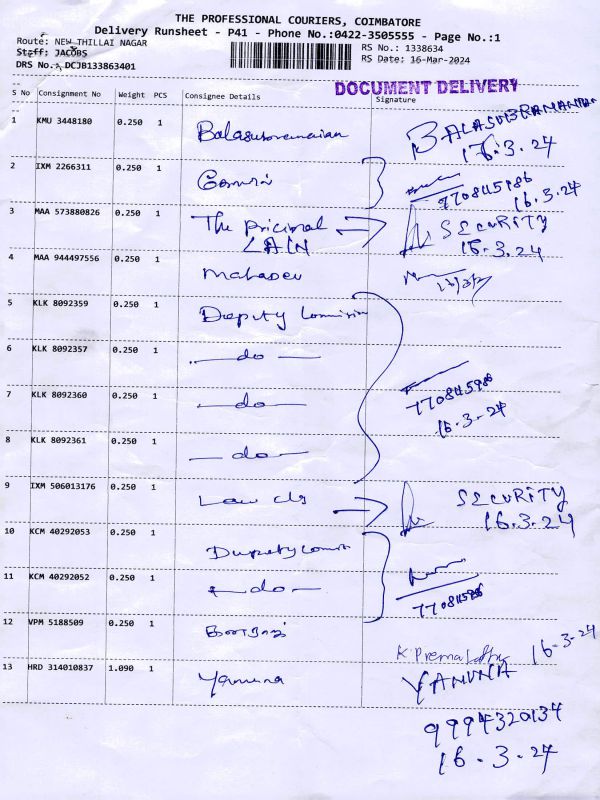 THE PROFESSIONAL COURIERS, COIMBATORE
Delivery Runsheet - P41 - Phone No.:0422-3505555 - Page No.:1
Route: NEW THILLAI NAGAR
RS No.: 1338634
Staff: JACOBS
RS Date: 16-Mar-2024
DRS No.: DCJB133863401
DOCUMENT DELIVERY
S No Consignment No Weight PCS Consignee Details Signature
1 KMU 3448180 0.250 1 BALASUBRAMANIAN
16.3.24
2 IXM 2266311 0.250 1 Gowri
970845986
16.3.24
3 MAA 573880826 0.250 1 The SECURITY
16.3.24
4 MAA 944497556 0.250 1 Mahadev
5 KLK 8092359 0.250 1 Deputy
6 KLK 8092357 0.250 1 —do—
7 KLK 8092360 0.250 1 —do—
16.3.24
8 KLK 8092361 0.250 1 —do—
9 IXM 506013176 0.250 1 Law clg SECURITY
16.3.24
10 KCM 40292053 0.250 1
11 KCM 40292052 0.250 1 —do—
12 VPM 5188509 0.250 1
K. Premalatha 16-3-24
13 HRD 314010837 1.090 1 Yamuna YAMUNA
9994320134
16.3.24